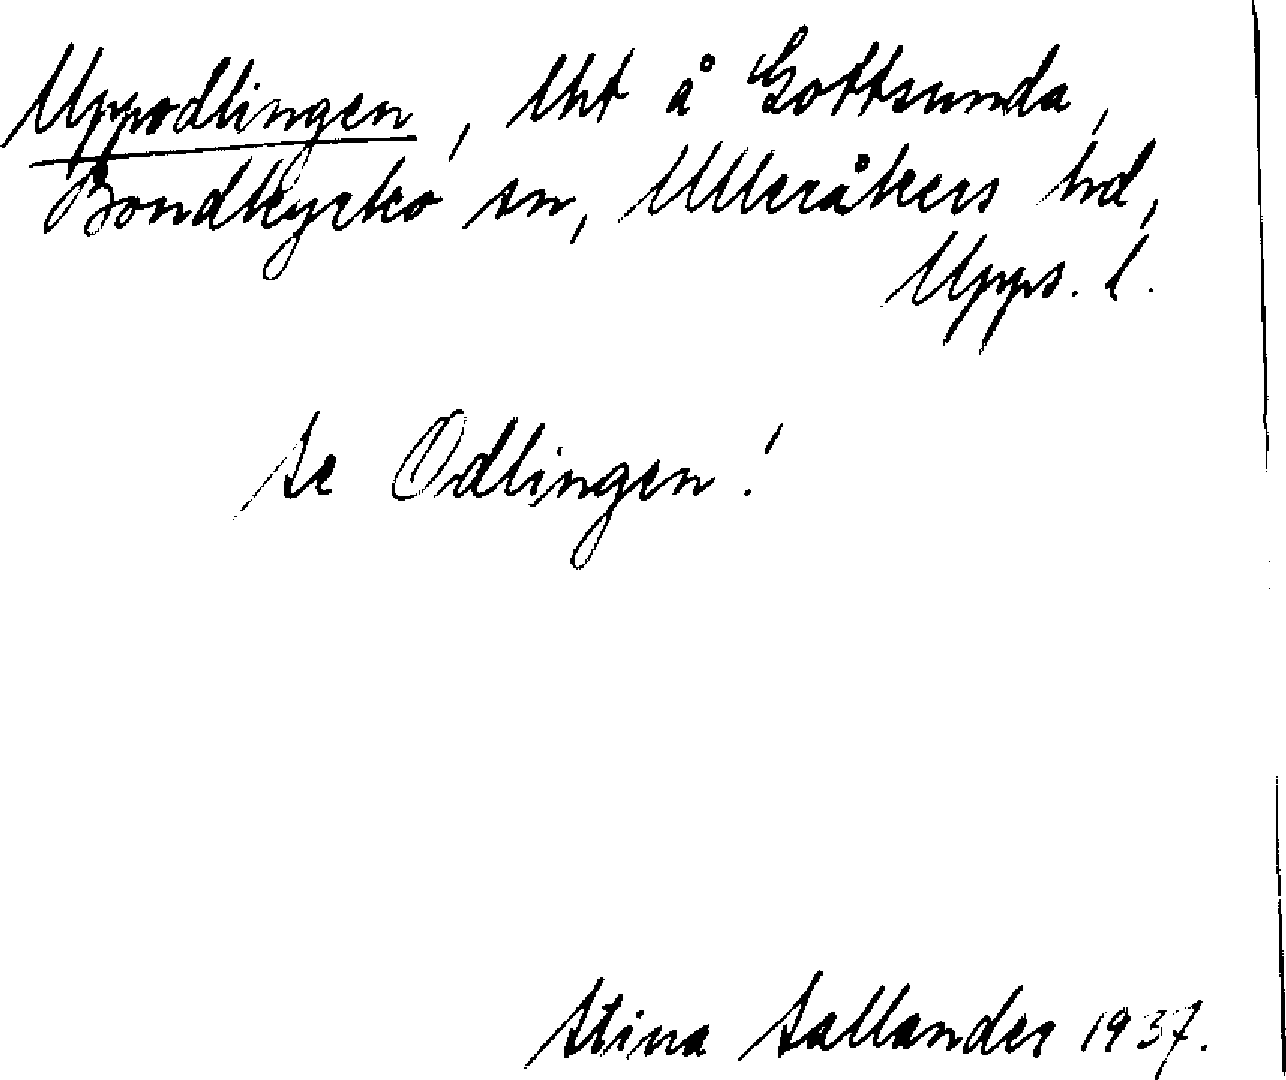 Uppodlingen, lht å Gottsunda,
Bondkyrko sn, Ulleråkers hd,
Upps. l.
Se Odlingen!
Stina Sallander 1937.